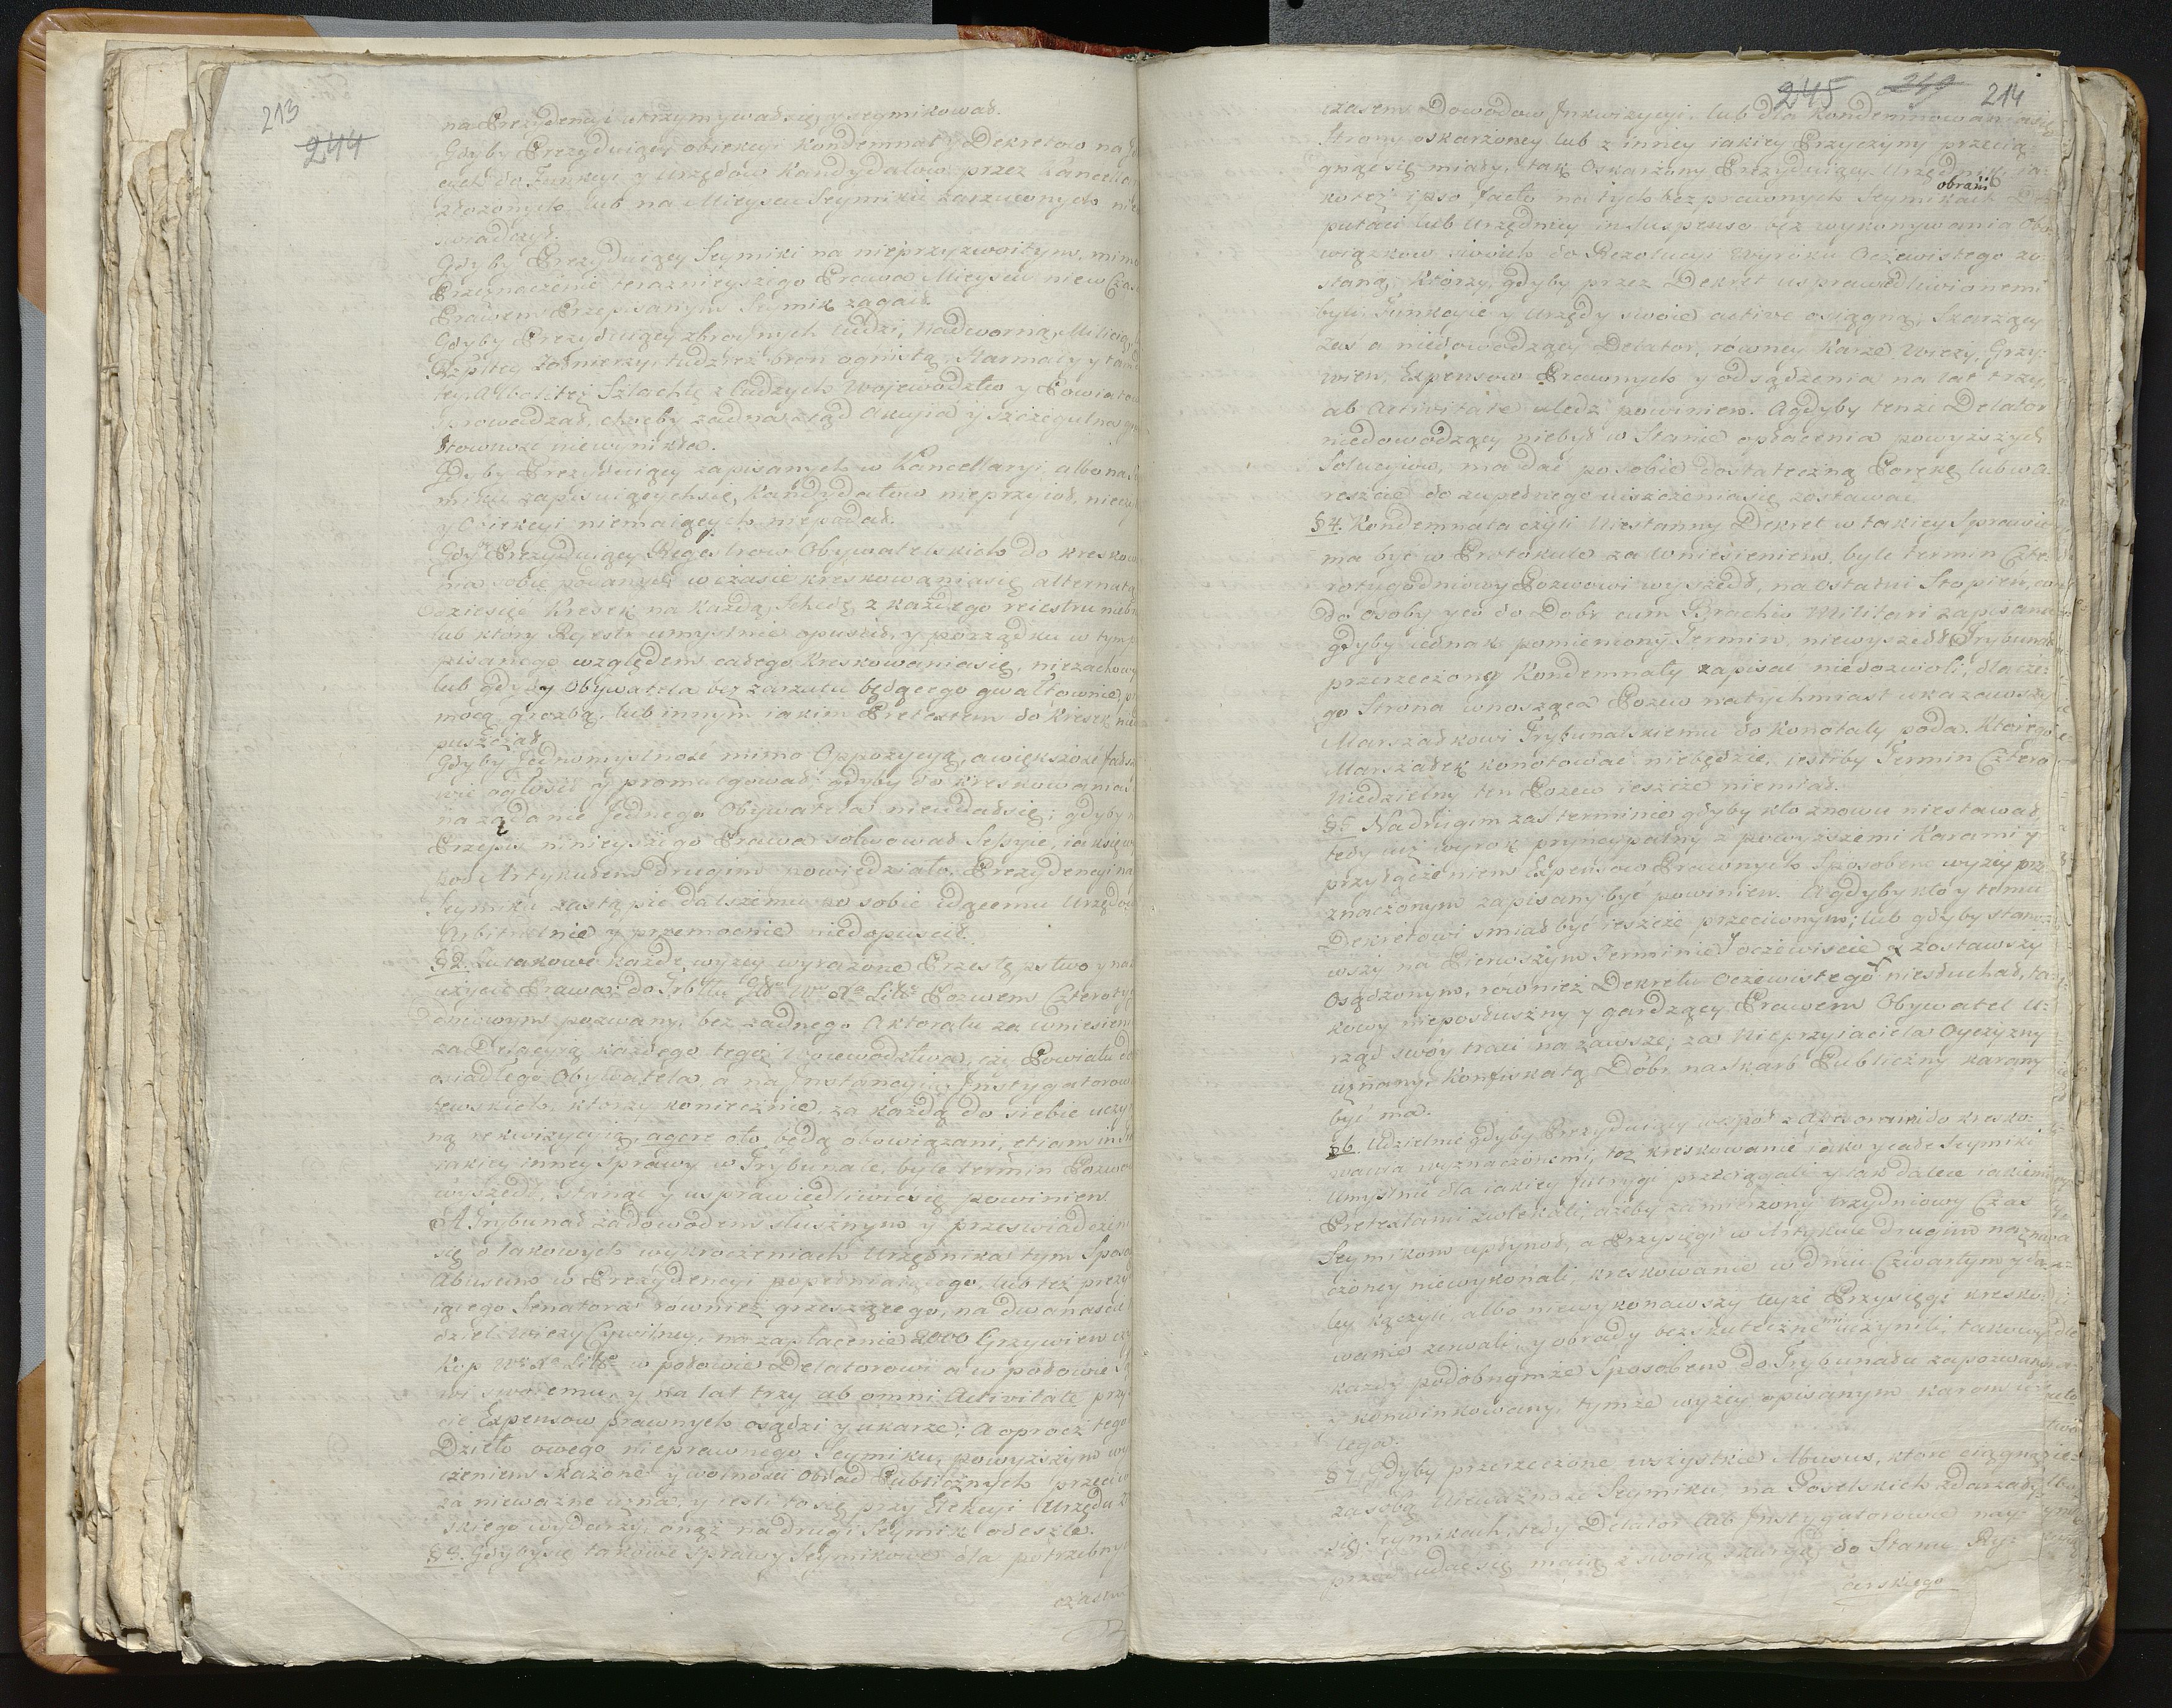 213
244
na Prezydencyi utrzymywał się, y seymikował.
Gdyby Prezyduiący obiekcyi Kondemnat y Dekretow na
cych do Funkcyi y Urzędow Kandydatow przez Kancella
złożonych lub na Mieyscu Seymiku zarzuconych nie
świadczył.
Gdyby Prezyduiący Seymiki na nieprzyzwoitym, mimo
Przeznaczenie teraznieyszego Prawa Mieyscu niew Czasie
Prawem Przepisanym Seymik zagaił.
Gdyby Prezyduiący zbroynych ludzi, nadworną Milicią,
Rzpltey Zołnierzy, tudzież broń ognistą, Harmaty y tam
Albo też Szlachtę z Cudzych Woiewodztw y Powiatow
prowadzał, choćby żadna ztąd Akcyia y szczegulna
towność niewynikła.
Gdyby Prezyduiący zapisanych w Kancellaryi albo na
miku zapisuiących się, Kandydatow nieprzyiął,
y Obiekcyi niemaiących niepodał.
Gdyby Prezyduiący Regestrow Obywatelskich do kreskow
nia sobie podanych w czasie kreskowania się alternatą
dziesięć Kresek na Każdą Schedę, z każdego reiestru
lub który Rejestr umyślnie opuścił, y porządku w tym
pisanego względem całego Kreskowania się, niezachowy
lub gdyby Obywatela bez zarzutu będącego gwałtownie,
mocą, groźbą, lub innym iakim Pretextem do Kresek nie
puszczał.
Gdyby Jednomyślność mimo Oppozycyą, a większość fałszy
wie ogłosił y promulgował; gdyby do kreskowania
na żądanie Jednego Obywatela nieudał się; gdyby
Przepis ninieyszego Prawa solwował Sessye, iak się w
pod Artykułem drugim powiedziało. Prezydencyi na
Seymiku zastąpić dalszemu po sobie idącemu Urzędow
Arbitralnie y przemocnie niedopuścił.
§ 2. Za takowe każde wyżey wyrażone Przestępstwo y nad
użycie Prawa: do Trbłłu Głłº Wº Xª Littº Pozwem Czterotyg
dniowym pozwany, bez żadnego Aktoratu za wniesieniem
za Delacyią każdego tegoż Woiewodztwa, czy Powiatu
osiadłego Obywatela, a na Jnstancyią Jnstygatorow
tewskich, ktorzy koniecznie, za każdą do siebie uczy
ną rekwizycyią, agere oto będą obowiązani, etiam
iakiey inney Sprawy w Trybunale, byle termin Pozwu
wyszedł, stanąć y usprawiedliwić się powinien
A Trybunał za dowodem słusznym y przeswiadczeniem
się o takowych wykroczeniach Urzędnika tym Sposo
Abusum w Prezydencyi popełniaiącego, lub też prezy
iącego Senatora również grzeszącego, na dwanaście
dziel Wieży Cywilney, na zapłacenie 2000 Grzywien czy
Kop Wº Xª Littº w połowie Delatorowi a w połowie
wi swoiemu, y na lat trzy ab omni Activitate przy
cie Expensow prawnych osądzi y ukarze; A oprocz tego
Dzieło owego nieprawnego Seymiku, powyższym wy
czeniem skażone y wolności Obrad Publicznych przeciw
za nieważne uzna, y iesli to się przy Elekcyi Urzędu
skiego wydarzy, onąż na drugi Seymik odeszle.
§ 3. Gdyby się takowe sprawy Seymikowe dla potrzebny
czasem
245 249 214
czasem Dowodow Jnkwizycyi, lub dla Kondemnowania się
Strony oskarżoney lub z inney iakiey Przyczyny przecią-
gnąć się miały, tak Oskarżony Prezyduiący Urzędnik ia-
koteż ipso facto na tych bezprawnych Seymikach obrani De
putaci lub Urzędnicy in suspenso bez wykonywania Obo-
wiązkow swoich do Rezolucyi Wyroku Oczewistego zo-
staną, Ktorzy, gdyby przez Dekret usprawiedliwionemi
byli, Funkcyie y Urzędy swoie active osiągną, Skarżący
zaś a niedowodzący Delator, rowney Karze Wieży, Grzy-
wien, Expensow Prawnych y odsądzenia na lat trzy,
ab Activitate uledz powinien. A gdyby tenże Delator
niedowodzący niebył w Stanie opłacenia powyższych
Solucyiow, ma dać po sobie dostateczną Porękę, lub w a-
reszcie do zupełnego uiszczenia się zostawać.
§ 4. Kondemnata czyli Niestanny Dekret w takiey Sprawie
ma być w Protokule za Wniesieniem, byle termin Czte-
rotygodniowy Pozwowi wyszedł, na ostatni Stopień, co
do Osoby y co do Dobr cum Brachio Militari zapisana
gdyby iednak pomieniony Termin, niewyszedł Trybunał
przerzeczoney Kondemnaty zapisać niedozwoli, dla cze-
go Strona wnosząca Pozew natychmiast ukazawszy
Marszałkowi Trybunalskiemu do Konotaty poda. Ktorego
Marszałek konotować niebędzie, iesliby Termin Cztero
Niedzielny ten Pozew ieszcze niemiał.
§ 5. Na drugim zaś terminie gdyby kto znowu niestawał,
tedy iuż wyrok pryncypalny z powyższemi Karami y
przyłączeniem Expensow Prawnych Sposobem wyżey prze
znaczonym zapisany być powinien. A gdyby kto y temu
Dekretowi smiał być ieszcze przeciwnym; lub gdyby stana-
wszy na Pierwszym Terminie Joczewiscie y zostawszy
Osądzonym, rownież Dekretu Oczewistego niesłuchał, ta-
kowy nieposłuszny y gardzący Prawem Obywatel U-
rząd swóy traci na zawsze; za Nieprzyiaciela Oyczyzny
uznany, Konfiskatą Dóbr na Skarb Publiczny karany
być ma.
§ 6. Udzielnie gdyby Prezyduiący wespoł z Assessorami do kresko-
wania wyznaczonemi, toż kreskowanie iako y całe Seymiki
umyślnie dla iakiey Jntrygi przeciągali y tak dalece iakiemi
Pretextami zwlekali, ażeby zamierzony trzydniowy Czas
Seymikom upłynoł, a Przysięgi w Artykule drugim nazna-
czoney niewykonali, kreskowanie w dniu Czwartym y da-
ley kączyli, albo niewykonawszy teyże Przysięgi kresko-
wanie zerwali, y obrady bezskutecznemi uczynili, takowy
każdy podobnymże Sposobem do Trybunału zapozwany
y konwinkowany, tymże wyżey opisanym karom u-
lega.
§ 7. Gdyby przerzeczone wszystkie Abusus, ktore ciągną
za sobą Nieważność Seymiku, na Poselskich zdarzały
się Seymikach, tedy Delator lub Jnstygatorowie nay-
przod udać się maią z swoią skargą do Stanu Ry-
cerskiego